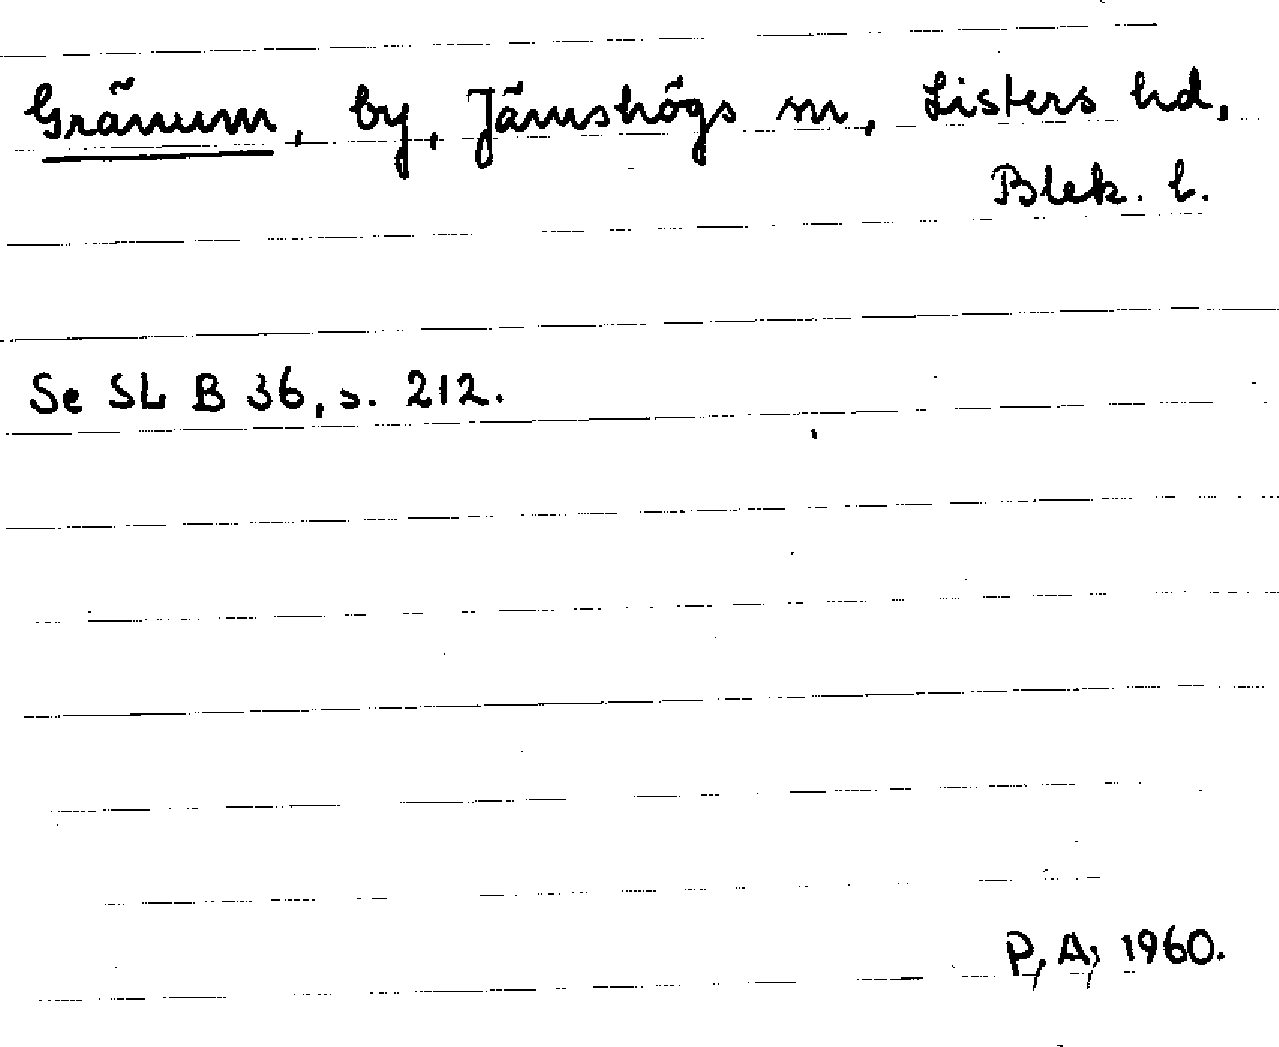 Gränum, by, Jämshögs sn, Listers hd,
Blek. l.
Se SL B 36, s. 212.
P. A; 1960.